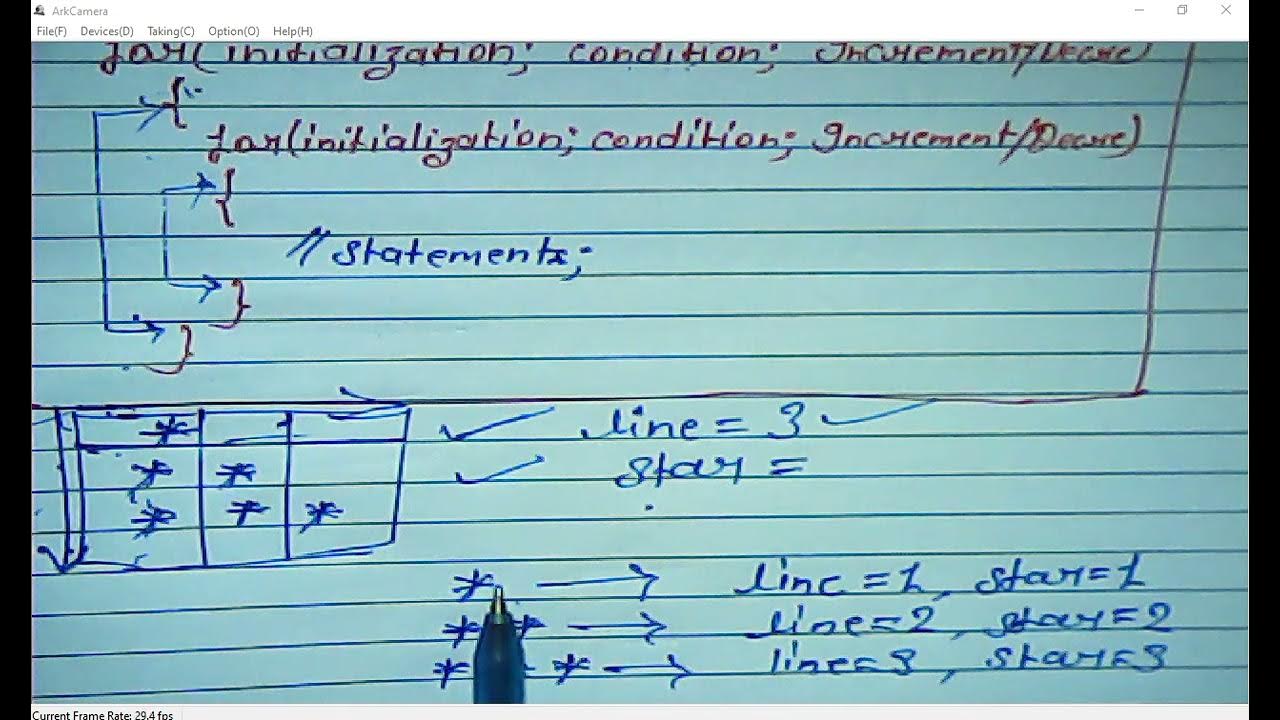 ArkCamera
File(F) Devices(D) Taking(C) Option(O) Help(H)
for(initialization; condition; Increment/Decre)
{
for(initialization; condition; Increment/Decre)
{
// Statements;
}
}
* line = 3
* * star =
* * *
* line = 1, star = 1
* * line = 2, star = 2
* * line = 3, star = 3
Current Frame Rate: 29.4 fps